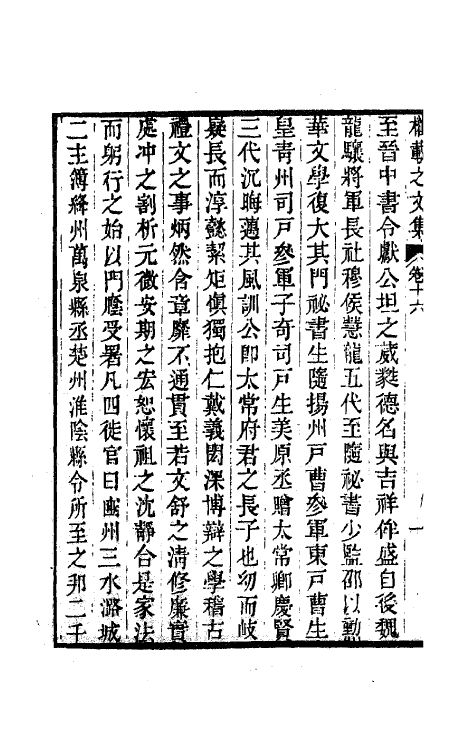 權載之文集 卷十六 一
至晉中書令獻公坦之葳蕤德名與吉祥侔盛自後魏
龍驤將軍長社穆侯慧龍五代至隨祕書少監邵以勳
華文學復大其門祕書生隨揚州戶曹參軍東戶曹生
皇青州司戶參軍子奇司戶生美原丞贈太常卿慶賢
三代沉晦藹其風訓公即太常府君之長子也幼而岐
嶷長而淳懿絜矩愼獨抱仁戴義閎深博辯之學稽古
禮文之事炳然含章靡不通貫至若文舒之清修廉實
處沖之剖析元微安期之宏恕懷祖之沈靜合是家法
而躬行之始以門廕受署凡四徙官曰豳州三水潞城
二主簿絳州萬泉縣丞楚州淮陰縣令所至之邦二千